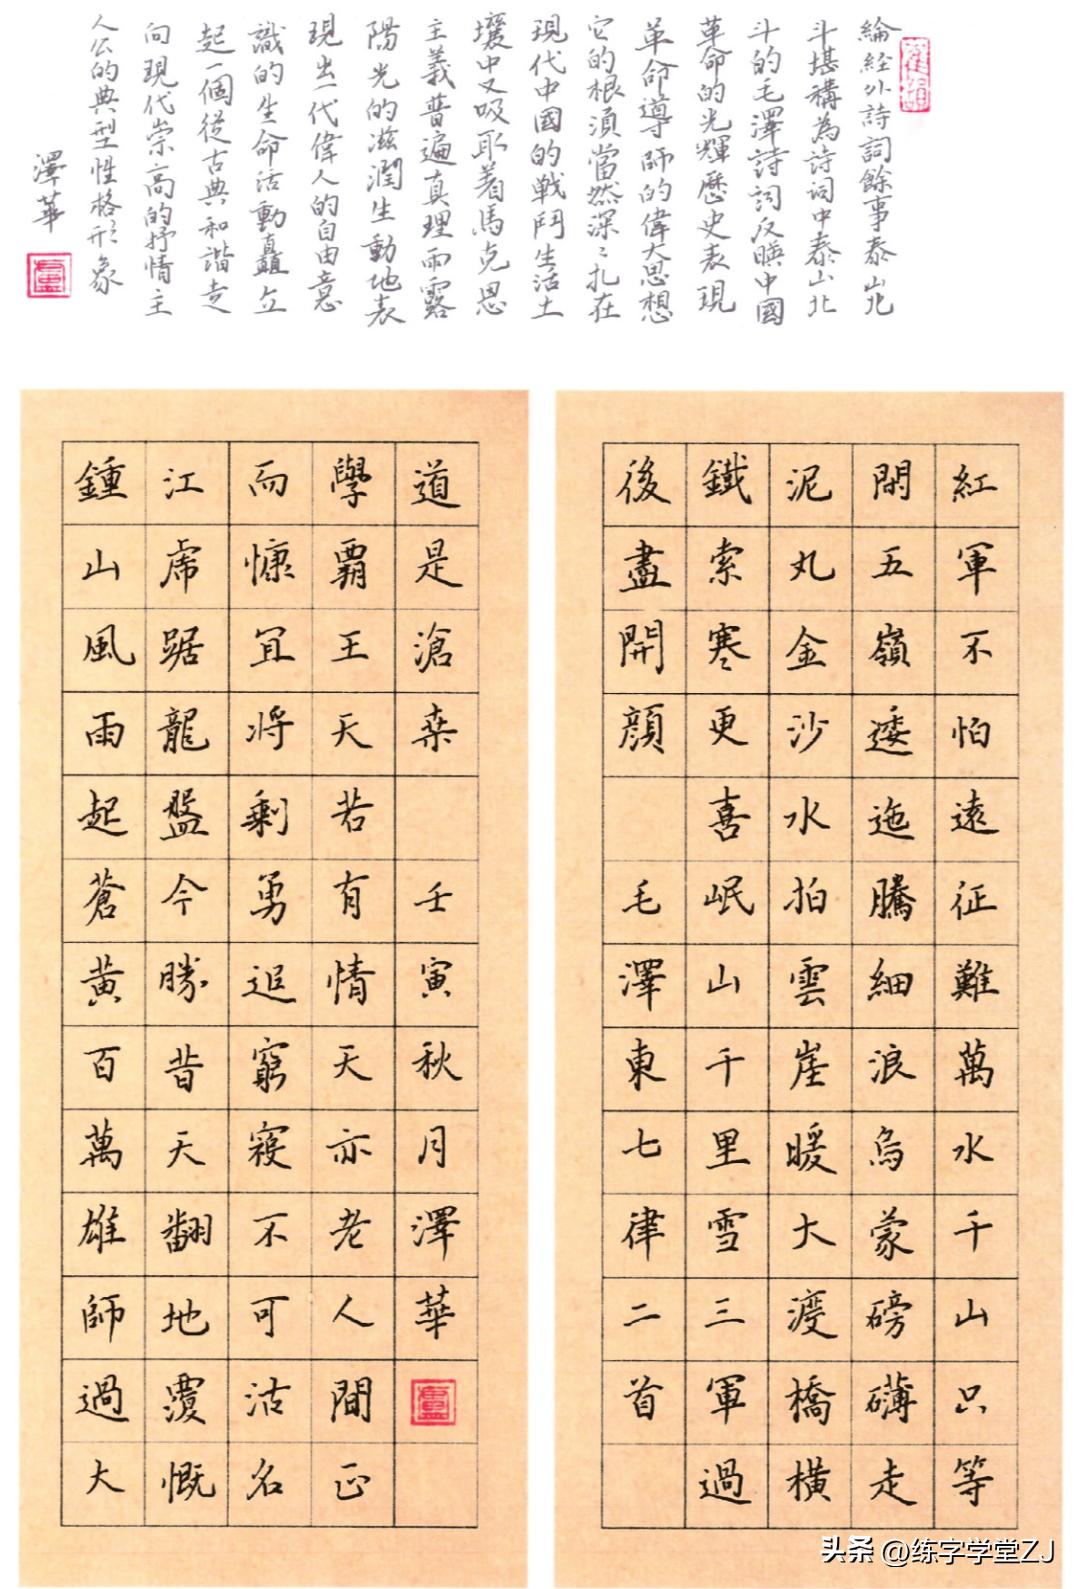 綸經外詩詞餘事泰山北
斗堪稱為詩詞中泰山北
斗的毛澤詩詞反映中國
革命的光輝歷史表現
革命導師的偉大思想
它的根須當然深〻扎在
現代中國的戰鬥生活土
壤中又吸取着馬克思
主義普遍真理雨露
陽光的滋潤生動地表
現出一代偉人的自由意
識的生命活動矗立
起一個從古典和諧走
向現代崇高的抒情主
人公的典型性格形象
澤華
紅軍不怕遠征難萬水千山只等
閑五嶺逶迤騰細浪烏蒙磅礴走
泥丸金沙水拍雲崖暖大渡橋橫
鐵索寒更喜岷山千里雪三軍過
後盡開顏 毛澤東七律二首
鍾山風雨起蒼黃百萬雄師過大
江虎踞龍盤今勝昔天翻地覆慨
而慷宜將剩勇追窮寇不可沽名
學霸王天若有情天亦老人間正
道是滄桑 壬寅秋月澤華
盧
头条 @练字学堂ZJ